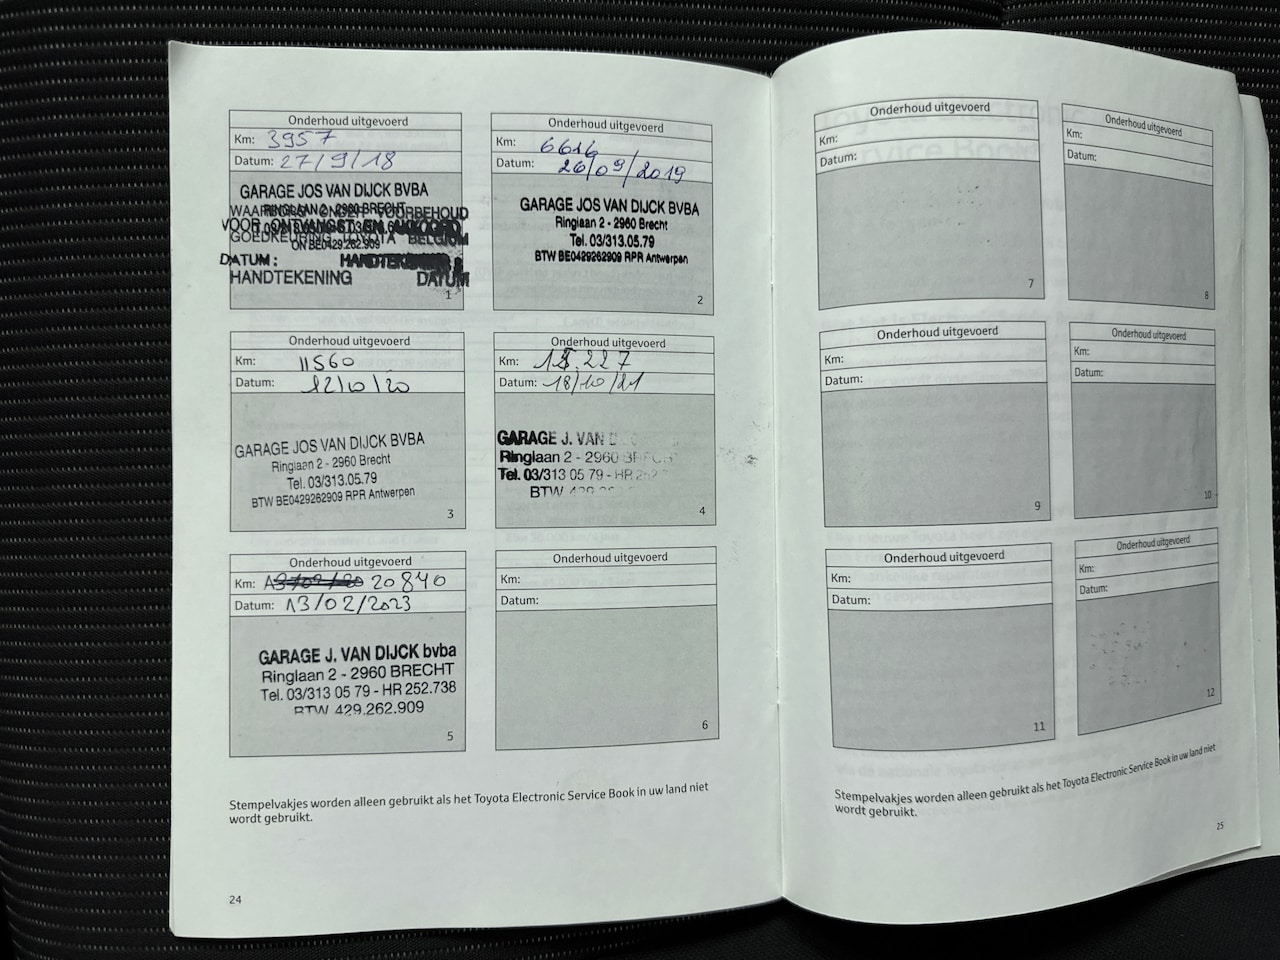 Onderhoud uitgevoerd
Km: 3957
Datum: 27/9/18
GARAGE JOS VAN DIJCK BVBA
RINGLAAN 2 - 2960 BRECHT
WAARBORG ONDER VOORBEHOUD
VOOR ONTVANGST EN AKKOORD
GOEDKEURING TOYOTA BELGIUM
ON BE0429.262.909
DATUM :
HANDTEKENING DATUM
1
Onderhoud uitgevoerd
Km: 6616
Datum: 26/09/2019
GARAGE JOS VAN DIJCK BVBA
Ringlaan 2 - 2960 Brecht
Tel. 03/313.05.79
BTW BE0429262909 RPR Antwerpen
2
Onderhoud uitgevoerd
Km: 11560
Datum: 12/10/20
GARAGE JOS VAN DIJCK BVBA
Ringlaan 2 - 2960 Brecht
Tel. 03/313.05.79
BTW BE0429262909 RPR Antwerpen
3
Onderhoud uitgevoerd
Km: 227
Datum: 18/10/21
GARAGE J. VAN D
Ringlaan 2 - 2960 BREC
Tel. 03/313 05 79 - HR 252
BTW
4
Onderhoud uitgevoerd
Km: 20840
Datum: 13/02/2023
GARAGE J. VAN DIJCK bvba
Ringlaan 2 - 2960 BRECHT
Tel. 03/313 05 79 - HR 252.738
BTW 429.262.909
5
Onderhoud uitgevoerd
Km:
Datum:
6
Stempelvakjes worden alleen gebruikt als het Toyota Electronic Service Book in uw land niet
wordt gebruikt.
24
Onderhoud uitgevoerd
Km:
Datum:
7
Onderhoud uitgevoerd
Km:
Datum:
8
Onderhoud uitgevoerd
Km:
Datum:
9
Onderhoud uitgevoerd
Km:
Datum:
10
Onderhoud uitgevoerd
Km:
Datum:
11
Onderhoud uitgevoerd
Km:
Datum:
12
Stempelvakjes worden alleen gebruikt als het Toyota Electronic Service Book in uw land niet
wordt gebruikt.
25